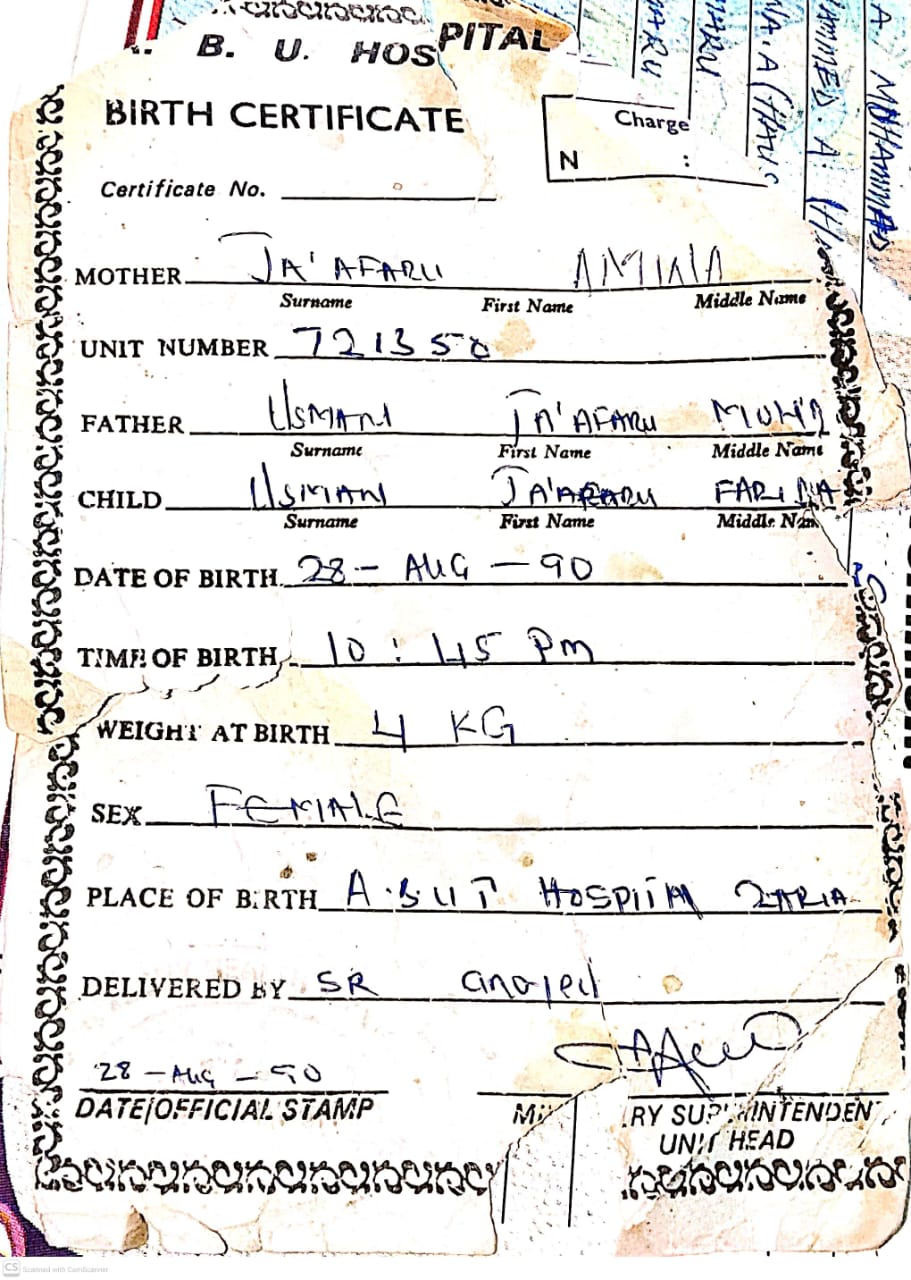 B. U. HOSPITAL
BIRTH CERTIFICATE
Charge
N :
Certificate No.
MOTHER JA'AFARU AMINA
Surname First Name Middle Name
UNIT NUMBER 721350
FATHER USMAN JA'AFARU MUH'D
Surname First Name Middle Name
CHILD USMAN JA'AFARU FARIDA
Surname First Name Middle Nam
DATE OF BIRTH 28 - AUG - 90
TIME OF BIRTH 10 : 45 PM
WEIGHT AT BIRTH 4 KG
SEX FEMALE
PLACE OF BIRTH A.B.U.T HOSPITAL ZARIA
DELIVERED BY SR
28 - AUG - 90
DATE/OFFICIAL STAMP
RY SUPERINTENDENT
UNIT HEAD
A. MOHAMMED
CS Scanned with CamScanner